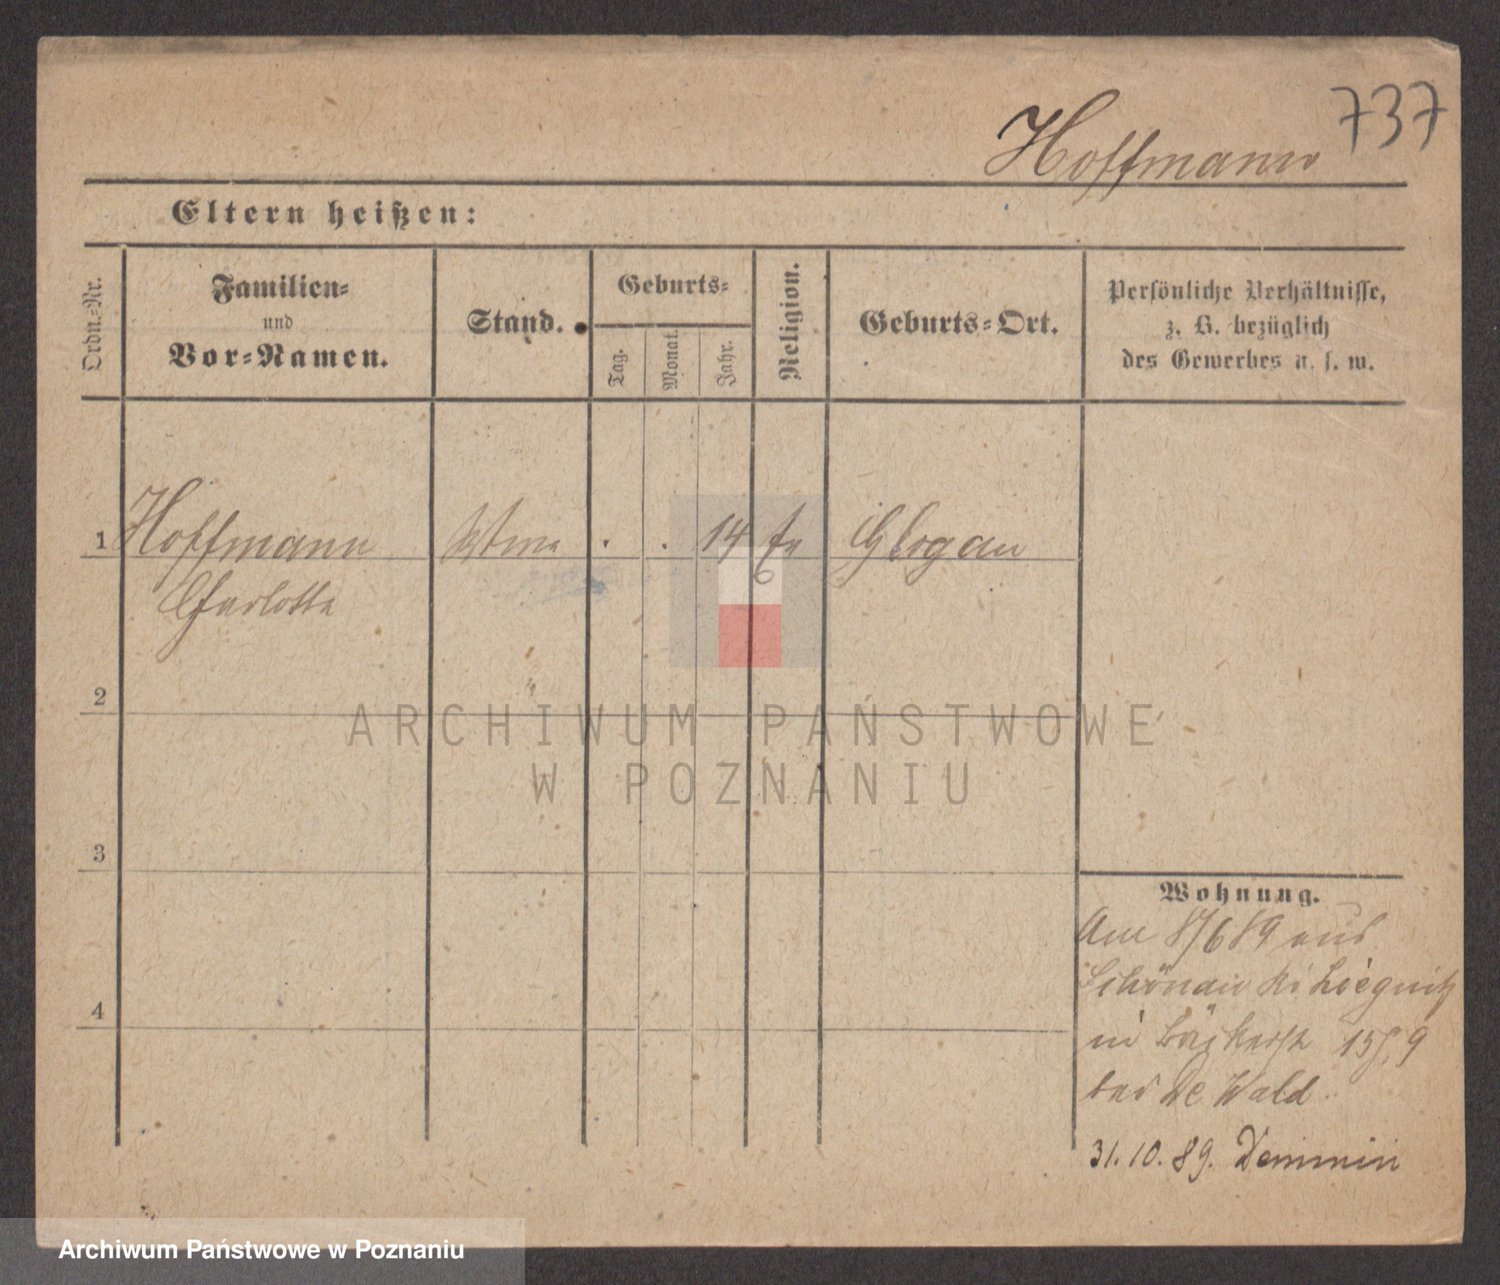 737
Hoffmann
Eltern heißen:
Ordn.-Nr.
Familien-
und
Vor-Namen.
Stand.
Geburts-
Tag.
Monat.
Jahr.
Religion.
Geburts-Ort.
Persönliche Verhältnisse,
z. B. bezüglich
des Gewerbes u. s. w.
1 Hoffmann Wwe . . 14 Glogau
Charlotte
2
3
4
Wohnung.
Am 8/6 89 aus
Schönau Kr Liegnitz
in
bei Wald
31. 10. 89. Demmin
ARCHIWUM PAŃSTWOWE
W POZNANIU
Archiwum Państwowe w Poznaniu